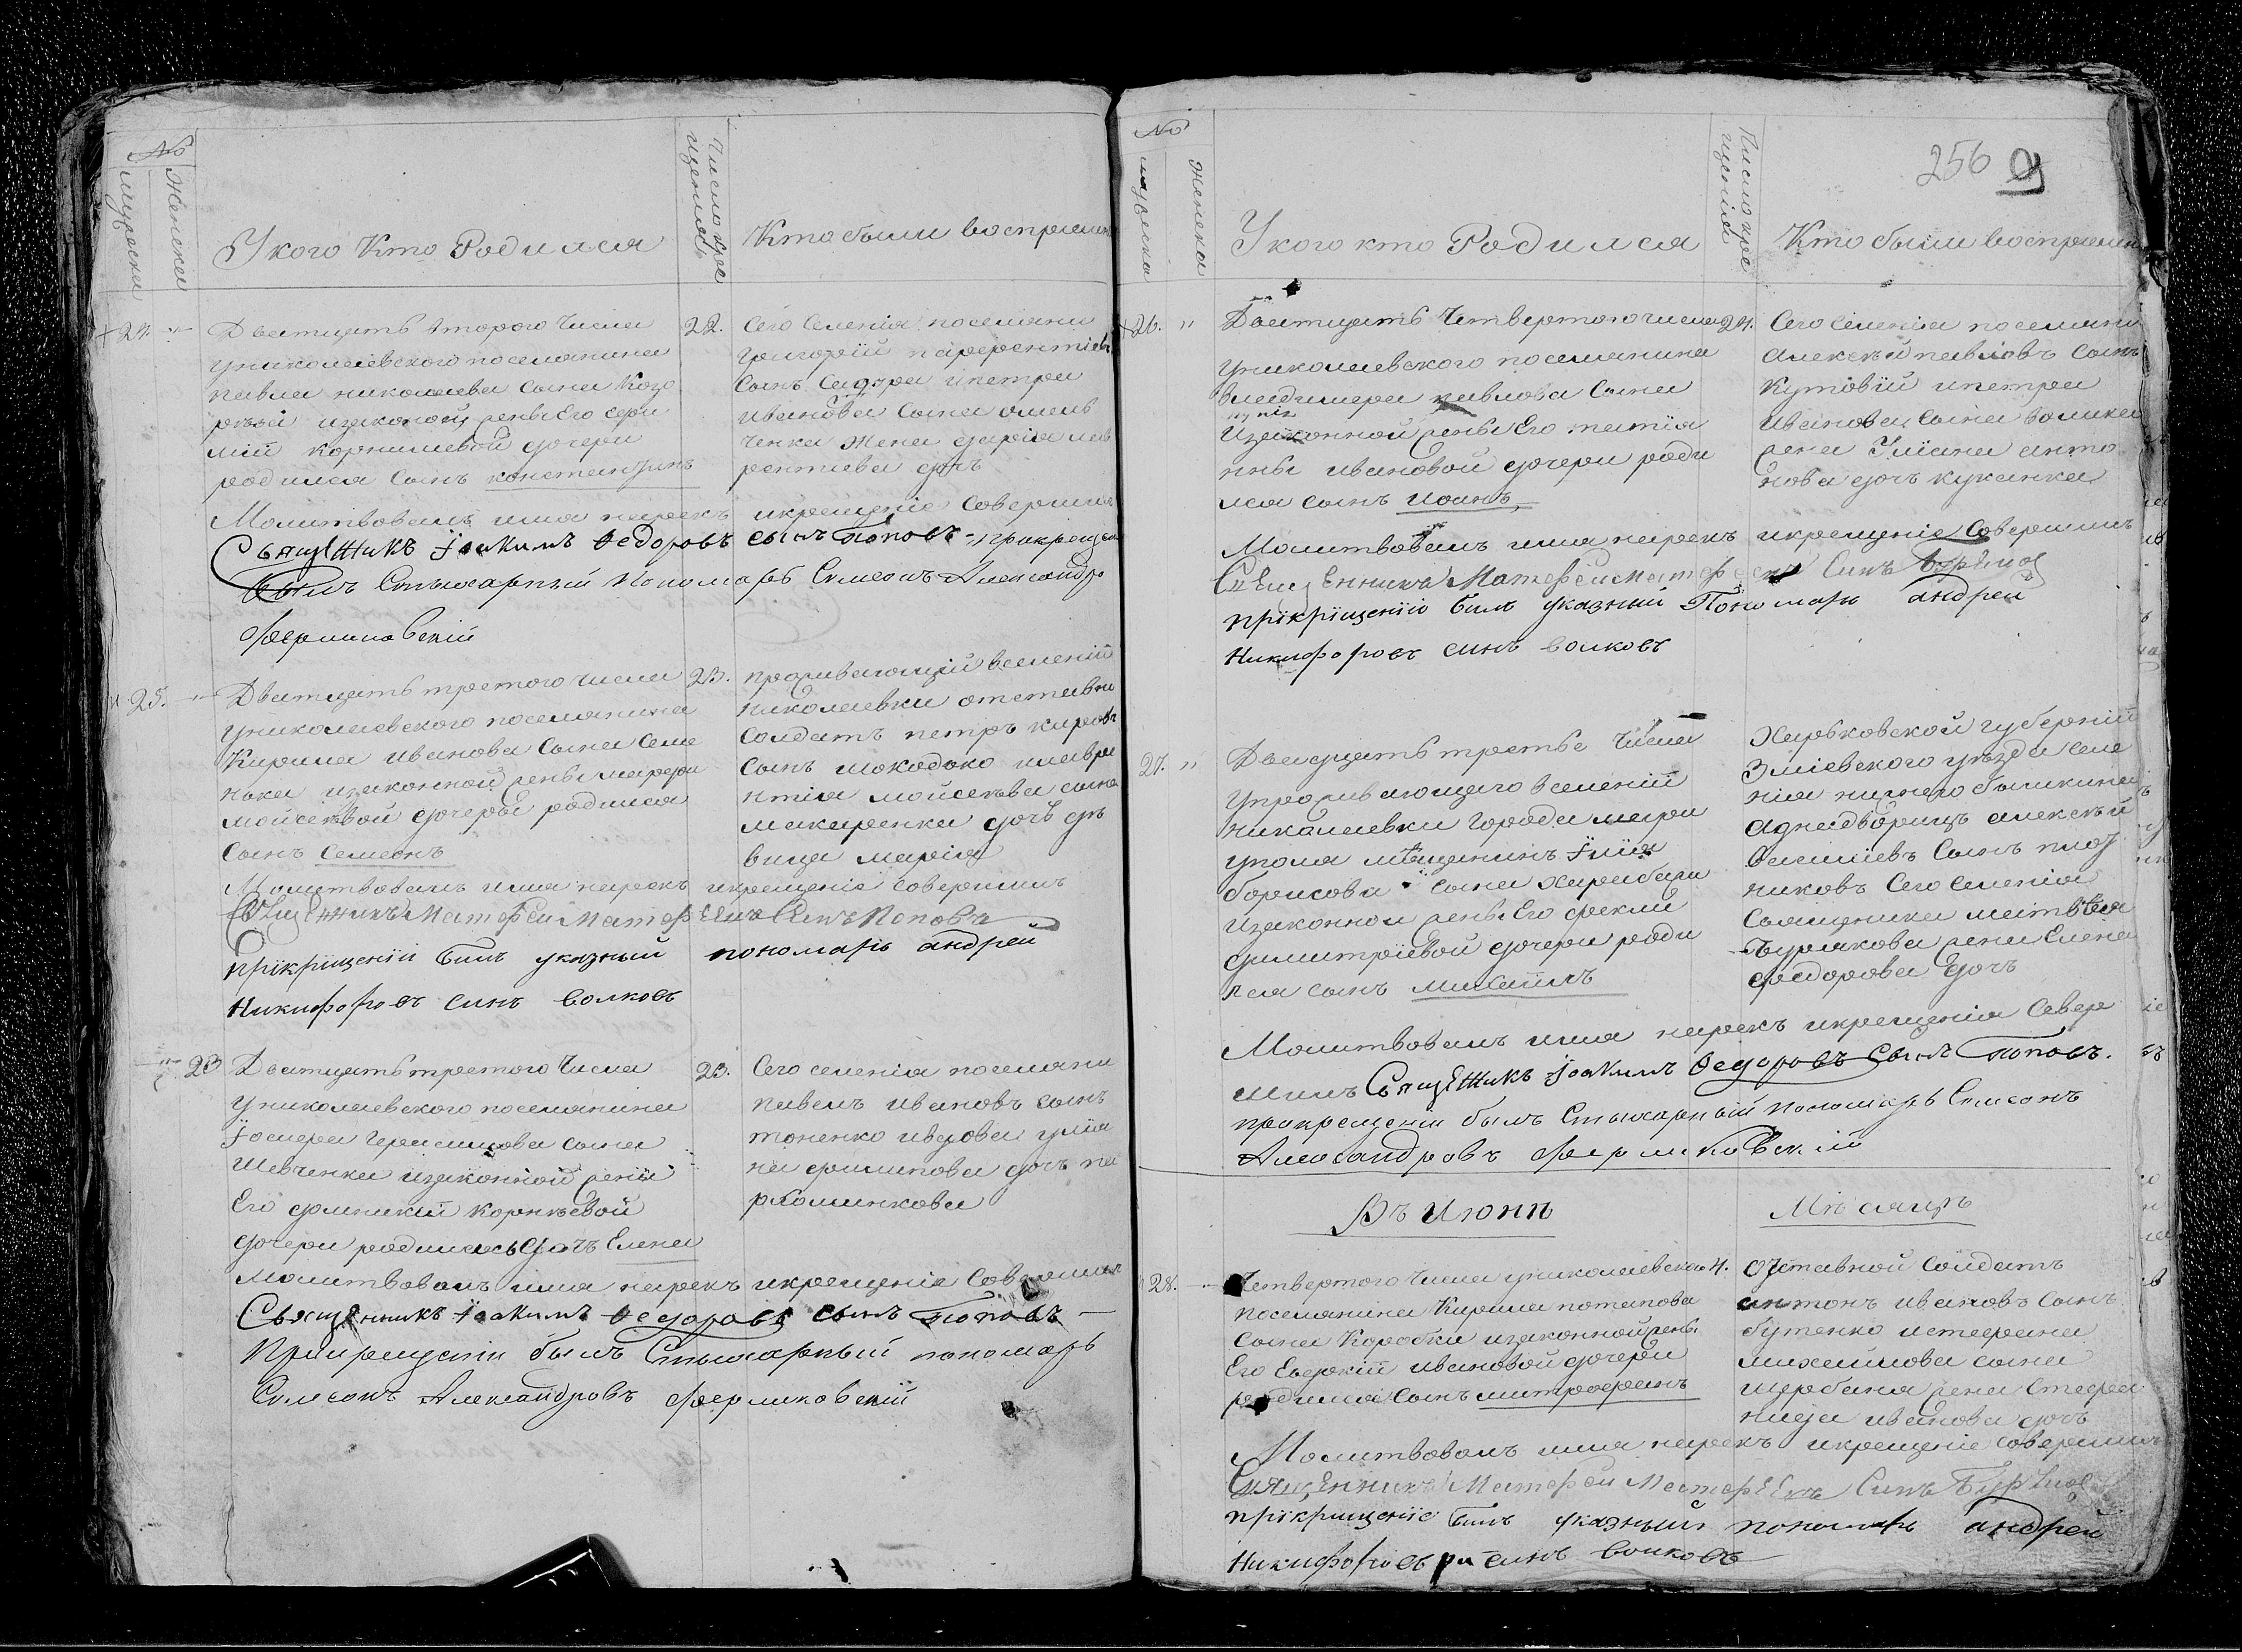 №
мужеска
женска
У кого Кто Родился
Число кре
щения
Кто были восприем
24.
Дватцять второго Числа
униколаевского поселянина
павла николаева сына Козо
его
мій корнилиевой дочери
родился сынъ константинъ
22.
Сего Селенія поселяни
григорій парфентіев
Сынъ и петра
иванова сына омель
ченка жена дарія лав
рентиева дочь
Молитвовалъ имя нарекъ икрещеніе Совершил
Священникъ Іоакимъ Ѳедоровъ сынъ Поповъ прикреще
былъ Стыхарный Пономарь Симеонъ Александро
25.
Дватцять третого числа
униколаевского поселянина
Кирила иванова сына Семе
нака изаконной жены марфы
мойсеевой дочеры родился
сынъ Семеонъ
23.
проживающій вселеніи
николаевки отставни
солдатъ петръ
сынъ шокодько илавре
нтія мойсеева сына
макаренка дочь дѣ
вица марія
Молитвовалъ имя нарекъ икрещеніе совершилъ
Священникъ Матфей Матфеевъ Синъ Поповъ
прікріщеніи билъ указный пономарь андрей
Никифоровъ синъ волковъ
23
Дватцять третого Числа
униколаевского поселянина
Герасимова сына
Шевченка изаконной жены
Его домникии корнѣевой
дочери родилась дочь Елена
23.
Сего селенія поселяни
павелъ ивановъ сынъ
тоненко ивдова улія
на филипова дочь па
рхоминкова
Молитвовалъ имя нарекъ икрещеніе Совершил
Священникъ Іоакимъ Ѳедоровъ сынъ Поповъ
Прикрещеніи былъ Стыхарный пономарь
Симеонъ Александровъ
№
мужеска
женска
У кого кто Родился
Число крес
щенія
Кто были восприем
256
26.
Дватцять Четвертого числа
униколаевского поселянина
владимера павлова сына
изаконной жены Его татія
нны ивановой дочери роди
лся сынъ иоанъ
24.
Сего селенія поселяни
алексѣй павловъ сынъ
кутовій ипетра
иванова сына волика
жена Уліана анто
нова дочь куканка
Молитвовалъ имя нарекъ икрещеніе Совершилъ
Священникъ Матфей Матфеевъ Синъ
прікріщеніи билъ указный Пономарь андрей
Никифоровъ синъ волковъ
27.
Двадцать третье числа
упроживающего вселеніи
николаевки города мари
уполя мѣщанинъ Іліи
борисова сына харабари
изаконной жены Его феклы
димитріевой дочери роди
лся сынъ михаилъ
Харьковской губерніи
Зміевского уѣзда селе
нія нижнего бышкина
аднадворицъ алексѣй
Василіевъ Сынъ плот
никовъ Сего Селенія
Священика матвѣя
Бурлакова жена Елена
федорова дочь
Молитвовалъ имя нарекъ икрещенія Совер
шилъ Священникъ Іоакимъ Ѳедоровъ сынъ Поповъ.
прикрещеніи былъ Стыхарный пономарь Симеонъ
Александровъ
Въ июнѣ Мѣсяцѣ
28.
Четвертого Числа униколаевского
поселянина Кирила потапова
Сына Коробки изаконной жены
Его Евдокіи ивановой дочери
родился Сынъ митрофанъ
4.
Отставной Солдатъ
антонъ ивановъ сынъ
бутенко истефана
михайлова сына
щербаня жена Стефа
нида иванова дочь
Молитвовалъ имя нарекъ икрещеніе совершилъ
Священникъ Матфей Матфеевъ Синъ
прікрищеніе билъ указный пономарь андрей
Никифоровъ синъ волковъ